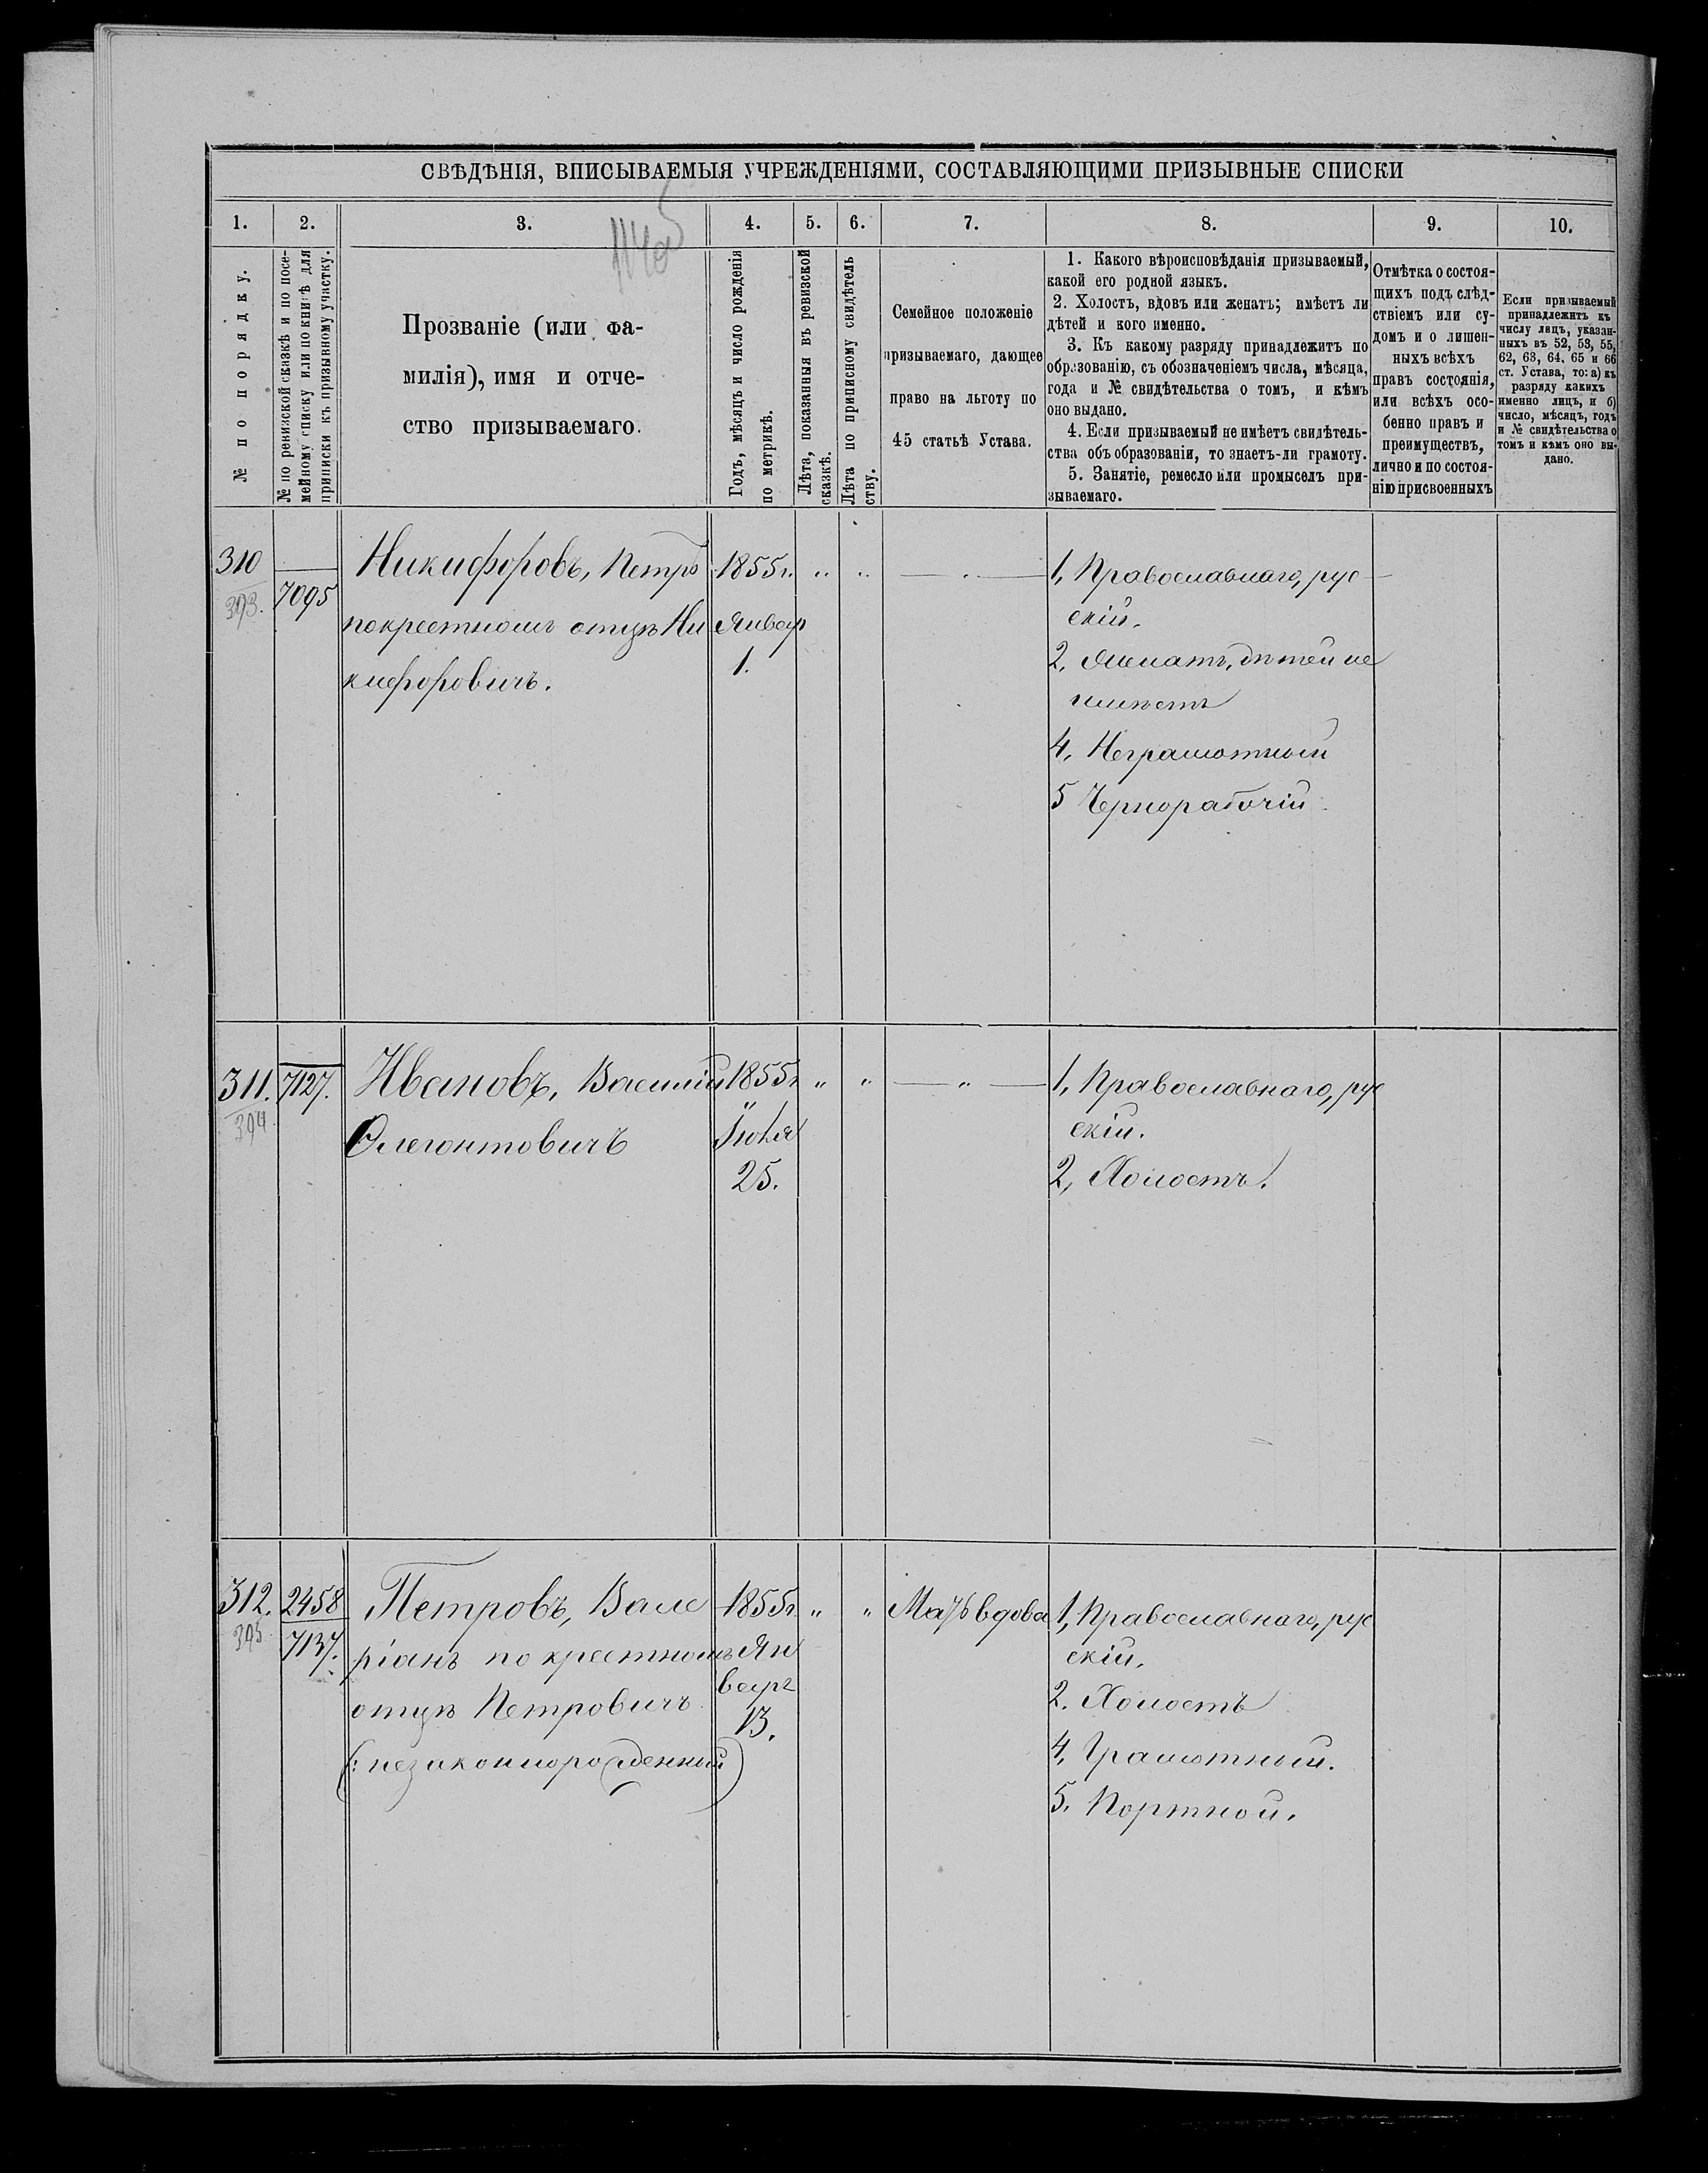 СВѢДѢНІЯ, ВПИСЫВАЕМЫЯ УЧРЕЖДЕНІЯМИ, СОСТАВЛЯЮЩИМИ ПРИЗЫВНЫЕ СПИСКИ
1. 2. 3. 4. 5. 6. 7. 8. 9. 10.
№ по порядку.
№ по ревизской сказкѣ и по посе-
мейному списку или по книгѣ для
приписки къ призывному участку.
Прозваніе (или фа-
милія), имя и отче-
ство призываемаго.
Годъ, мѣсяцъ и число рожденія
по метрикѣ.
Лѣта, показанныя въ ревизской
сказкѣ.
Лѣта по приписному свидѣтель
ству.
Семейное положеніе
призываемаго, дающее
право на льготу по
45 статьѣ Устава.
1. Какого вѣроисповѣданія призываемый,
какой его родной языкъ.
2. Холостъ, вдовъ или женатъ; имѣетъ ли
дѣтей и кого именно.
3. Къ какому разряду принадлежитъ по
образованію, съ обозначеніемъ числа, мѣсяца,
года и № свидѣтельства о томъ, и кѣмъ
оно выдано.
4. Если призываемый не имѣетъ свидѣтель-
ства объ образованіи, то знаетъ-ли грамоту.
5. Занятіе, ремесло или промыселъ при-
зываемаго.
Отмѣтка о состоя-
щихъ подъ слѣд-
ствіемъ или су-
домъ и о лишен-
ныхъ всѣхъ
правъ состоянія,
или всѣхъ осо-
бенно правъ и
преимуществъ,
лично и по состоя-
нію присвоенныхъ
Если призываемый
принадлежитъ къ
числу лицъ, указан-
ныхъ въ 52, 53, 55,
62, 63, 64, 65 и 66
ст. Устава, то: а) къ
разряду какихъ
именно лицъ, и б)
число, мѣсяцъ, годъ
и № свидѣтельства о
томъ и кѣмъ оно вы-
дано.
310
393.
7095
Никифоровъ, Петръ
по крестному отцу Ни
кифоровичъ.
1855 г.
Январ
1.
" " — " —
1, Православнаго, рус
скій.
2, Женатъ, дѣтей не
имѣетъ
4, Неграмотный
5 Чернорабочій.
311.
394.
7127.
Ивановъ, Василій
Олегонтовичъ
1855 г
Іюня
25.
" " — " —
1, Православнаго, рус
скій.
2, Холостъ.
312.
395.
2458
7137.
Петровъ, Вале
ріанъ по крестному
отцу Петровичъ
(: незаконнорожденный)
1855 г.
Ян
варя
13.
" " Мать вдова
1, Православнаго, рус
скій.
2. Холостъ
4, Грамотный.
5. Портной.